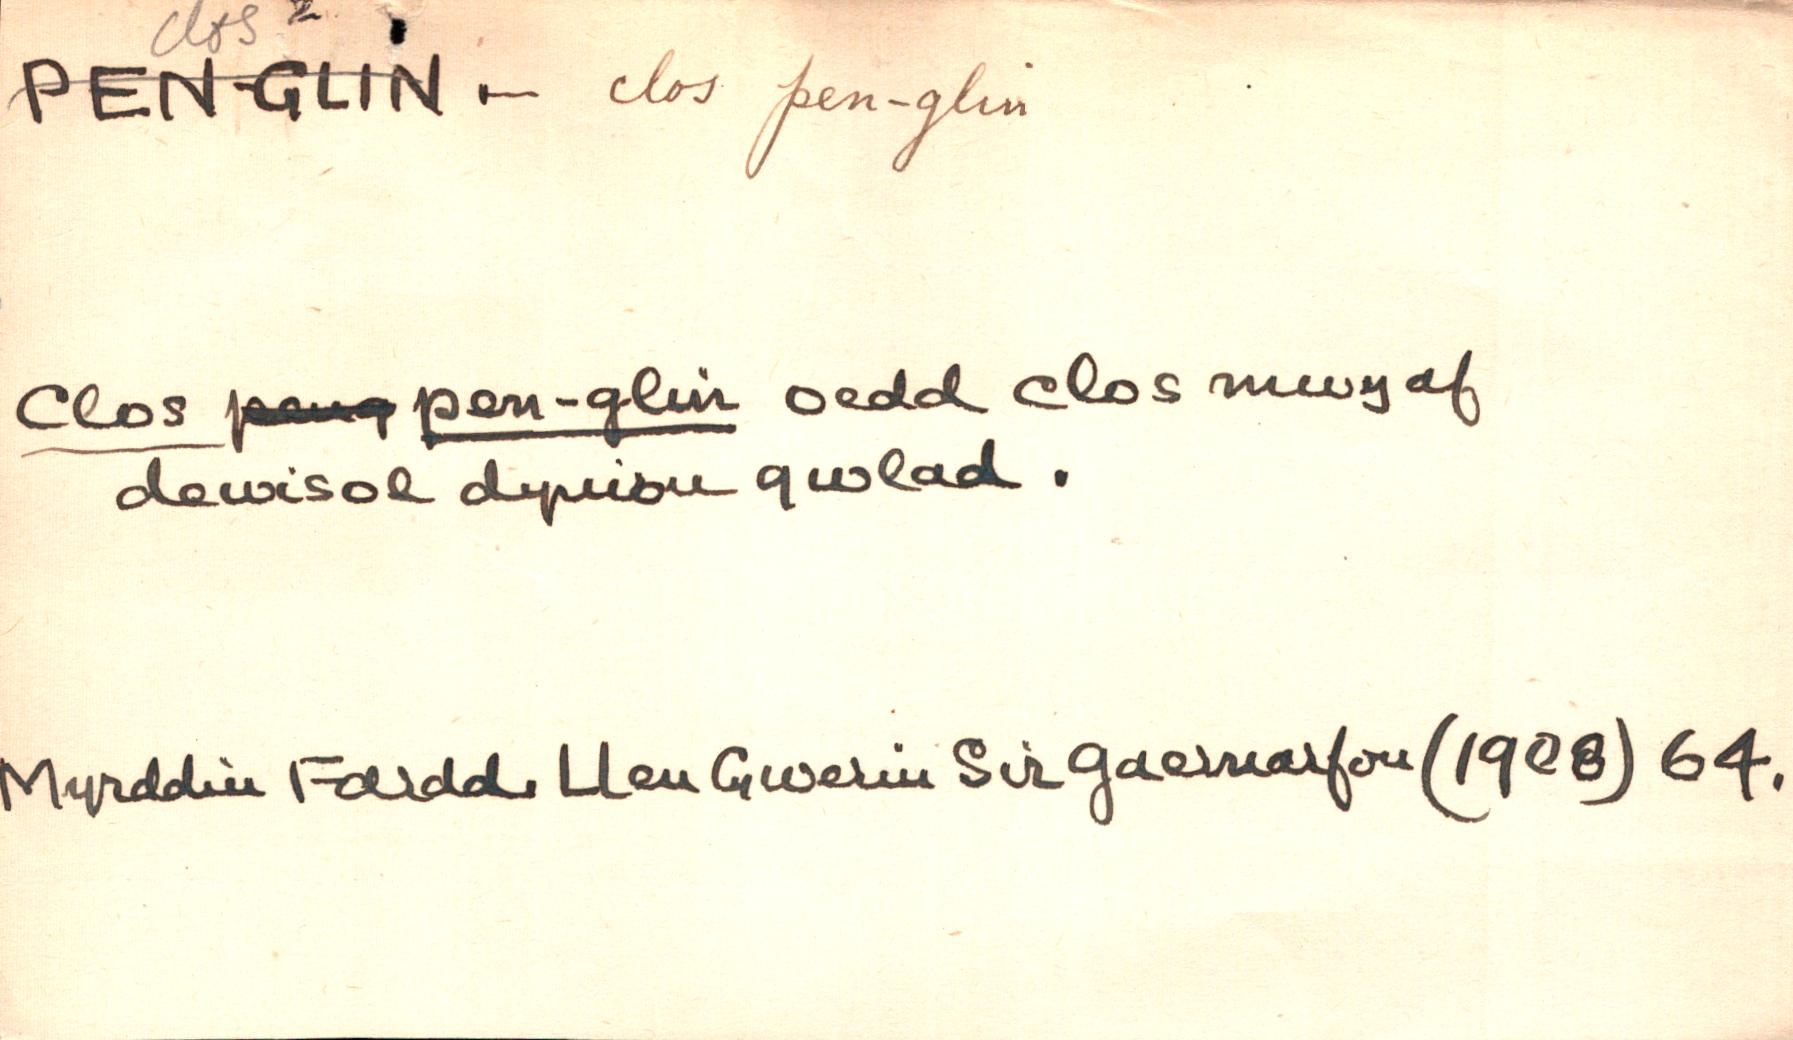 clos 2
PEN-GLIN - clos pen-glin
Clos peng pen-glin oedd clos mwyaf
dewisol dynion gwlad.
Myrddin Fardd. Llen Gwerin Sir Gaernarfon (1908) 64.